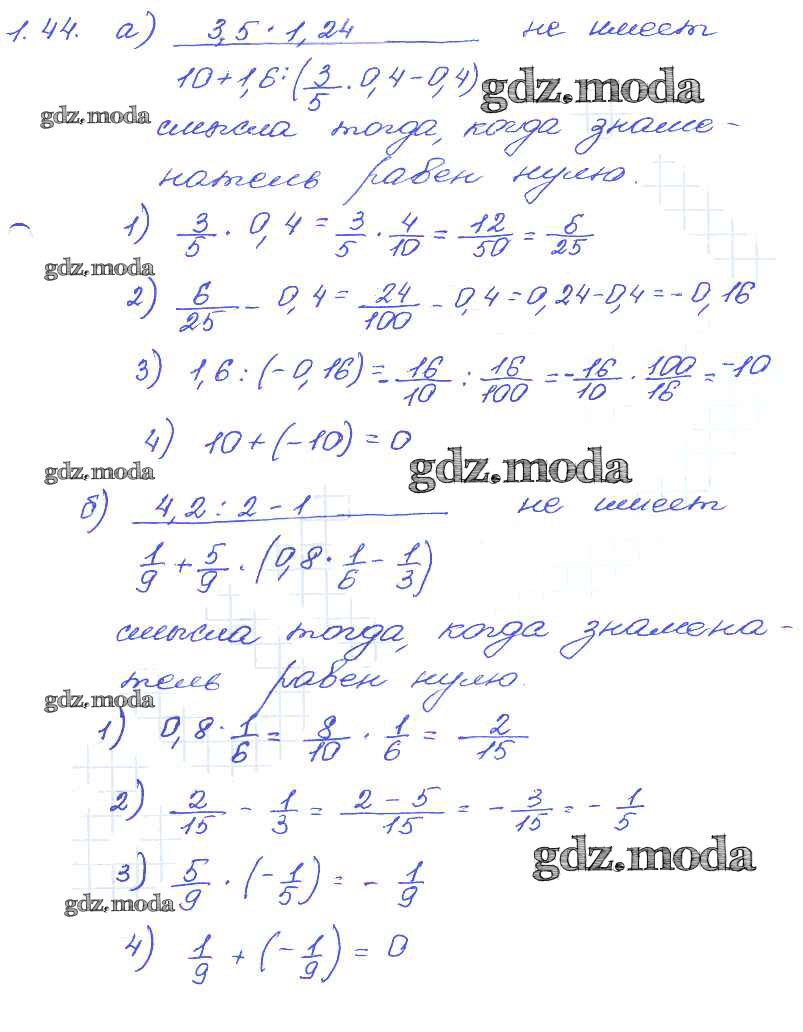 1.44. а) 3,5 · 1,24 / 10 + 1,6 : (3/5 · 0,4 - 0,4) не имеет
gdz.moda
gdz.moda
смысла тогда, когда знаме-
натель равен нулю.
1) 3/5 · 0,4 = 3/5 · 4/10 = 12/50 = 6/25
gdz.moda
2) 6/25 - 0,4 = 24/100 - 0,4 = 0,24-0,4 = - 0,16
3) 1,6 : (- 0,16) = - 16/10 : 16/100 = - 16/10 · 100/16 = -10
4) 10 + (-10) = 0
gdz.moda
gdz.moda
б) 4,2 : 2 - 1 / 1/9 + 5/9 · (0,8 · 1/6 - 1/3) не имеет
смысла тогда, когда знамена-
тель равен нулю.
gdz.moda
1) 0,8 · 1/6 = 8/10 · 1/6 = 2/15
2) 2/15 - 1/3 = 2 - 5/15 = - 3/15 = - 1/5
gdz.moda
3) 5/9 · (- 1/5) = - 1/9
gdz.moda
4) 1/9 + (- 1/9) = 0